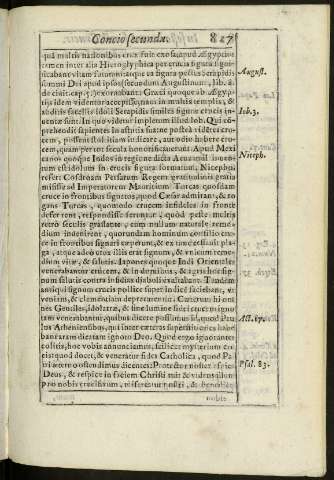 Concio secunda. 827
quā multis nationibus crux fuit exosa, apud Ægyptios
tamen inter alia Hieroglyphica per crucis figurā signi-
ficabāt vitam futuram: atque ea figura pectus Serapidis
summi Dei apud ipsos secundum Augustinum, lib.
de civit. cap. 5. exornabant. Græci quoque ab Ægy-
ptijs idem videntur accepisse: nam in multis templis, &
auditis Idoli Serapidis similes figuræ crucis in-
ventæ sunt. In quo videtur impletum illud Iob. Qui cō-
prehendit sapientes in astutia
possent stultitiam iudicare, aut odio habere cru-
cem, quam per tot sæcula honorificaverunt. Apud Mexi
canos quoque Indos in regione dicta Acuzamil inven-
tum est idolum in crucis figura formatum. Nicephorus
refert Cosdroam Persarum Regem gratitudinis gratia
misisse ad Imperatorem Mauricium Turcas quosdam
cruce in frontibus signatos, quod Cæsar admirans, & ro-
gans Turcas, quomodo crucem infideles in fronte
deferrent, respondisse feruntur, quòd peste multis
retrò seculis grassante, cum nullum naturale reme-
dium invenirent, quorundam hominum consilio cru-
ce in frontibus signari cœperunt, & ex tunc cessasse pla-
ga, atque adeo crux illis erat signum, & unicum reme-
dium vitæ, & salutis. Iapones quoque Indi Orientales
venerabantur crucem, & in domibus, & agris hoc sig-
num salutis contra insidias diaboli exaltabant. Tandem
antiqui signum crucis pollice super indice faciebant, ve-
niam, & clementiam deprecantes. Cunctis homi-
nes Gentiles, idolatræ, & sine lumine fidei crucem igno-
tam venerabantur, quibus dicere possumus id, quod Pau-
lus Atheniensibus, qui inter cæteras superstitiones habe-
bant aram dicatam ignoto Deo. Quod ergo ignorantes
colitis, hoc vobis annunciamus, scilicet mysterium cru-
cis quod docet, & veneratur fides Catholica, quod Pa-
tri æterno ostendimus dicentes: Protector noster aspice
Deus, & respice in faciem Christi tui: & videns illum
pro nobis crucifixum, miserere nostri, & benedic
nobis
August.
Iob. 3.
Niceph.
Act. 17.
Psal. 83.